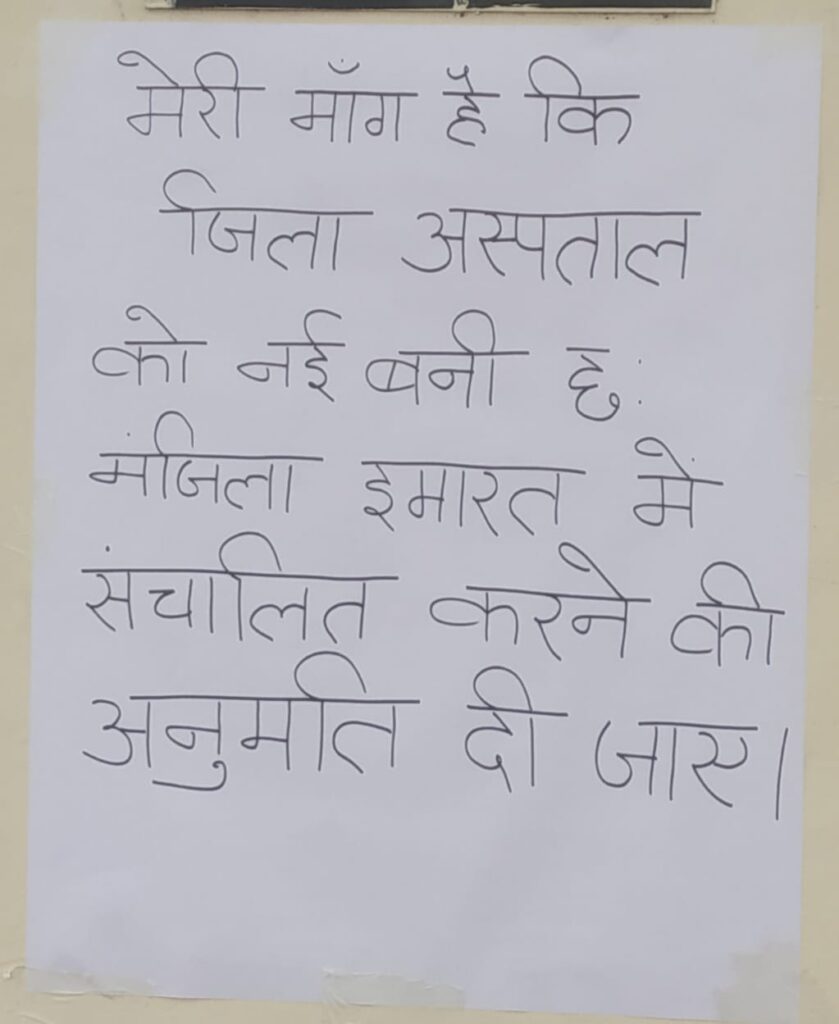 मेरी माँग है कि
जिला अस्पताल
को नई बनी छः
मंजिला इमारत में
संचालित करने की
अनुमति दी जाए।